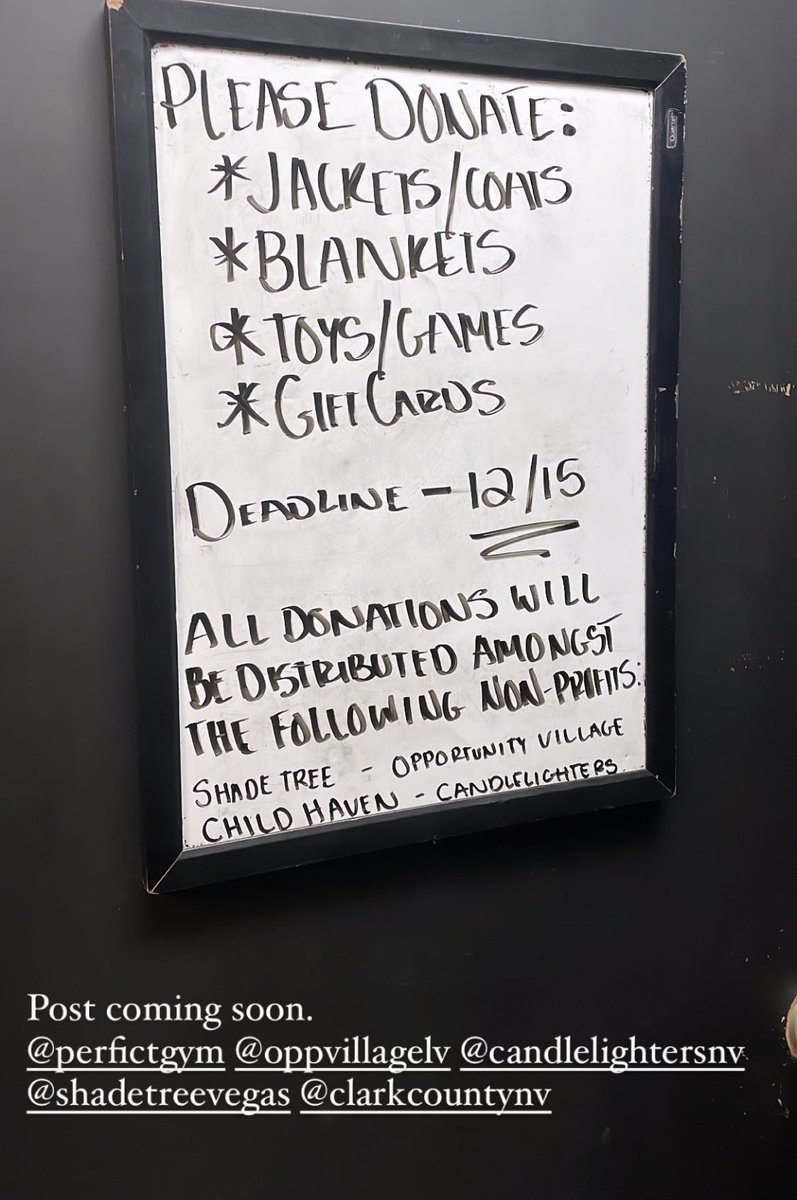 PLEASE DONATE:
*JACKETS/COATS
*BLANKETS
*TOYS/GAMES
*GIFT CARDS
DEADLINE - 12/15
ALL DONATIONS WILL
BE DISTRIBUTED AMONGST
THE FOLLOWING NON-PROFITS:
SHADE TREE - OPPORTUNITY VILLAGE
CHILD HAVEN - CANDLELIGHTERS
Post coming soon.
@perfictgym @oppvillagelv @candlelightersnv
@shadetreevegas @clarkcountynv